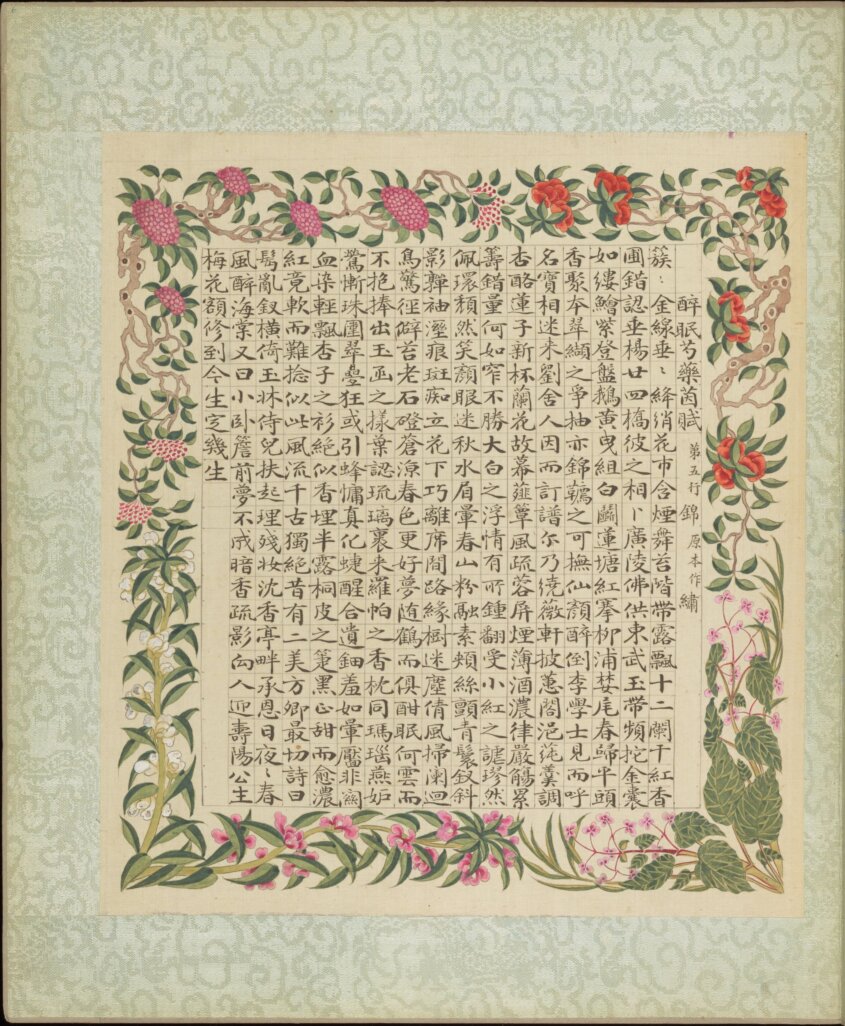 醉眠芍藥茵賦 第五行 錦 原本作 繡
簇〻金線垂〻絳綃花市含煙舞苔階帶露飄十二闌干紅香
圃錯認垂楊廿四橋彼之相卜廣陵佛供東武玉帶頻挖金囊
如縷鱠紫登盤鵝黃曳組白鬬蓮塘紅搴柳浦婪尾春歸平頭
香聚本翠纈之爭抽亦錦韉之可撫仙顏醉倒李學士見而呼
名寶相迷來劉舍人因而訂譜尔乃繞薇軒披蕙閣浥蓴羹調
杏酪蓮子新杯蘭花故幕薤簟風疏蓉屏煙薄酒濃律嚴觴累
籌錯量何如窄不勝大白之浮情有所鍾翻受小紅之謔璆然
佩環頹然笑顏眼迷秋水眉暈春山粉融素頰絲顫青鬟釵斜
影嚲袖溼痕斑痴立花下巧離席間路緣樹迷塵倩風掃闌迴
鳥驚徑僻苔老石磴蒼涼春色更好夢隨鶴而俱酣眠何雲而
不抱捧出玉函之樣葉認琉璃裹來羅帕之香枕同瑪瑙燕妒
鶯慚珠圍翠疊狂或引蜂慵真化蜨醒合遺鈿羞如暈靨非關
血染輕飄杏子之衫絕似香埋半露桐皮之筵黑正甜而愈濃
紅竟軟而難捻似此風流千古獨絕昔有二美方卿最切詩曰
鬅亂釵橫倚玉牀侍兒扶起理殘妝沈香亭畔承恩日夜〻春
風醉海棠又曰小臥簷前夢不成暗香疏影向人迎壽陽公主
梅花額修到今生定幾生